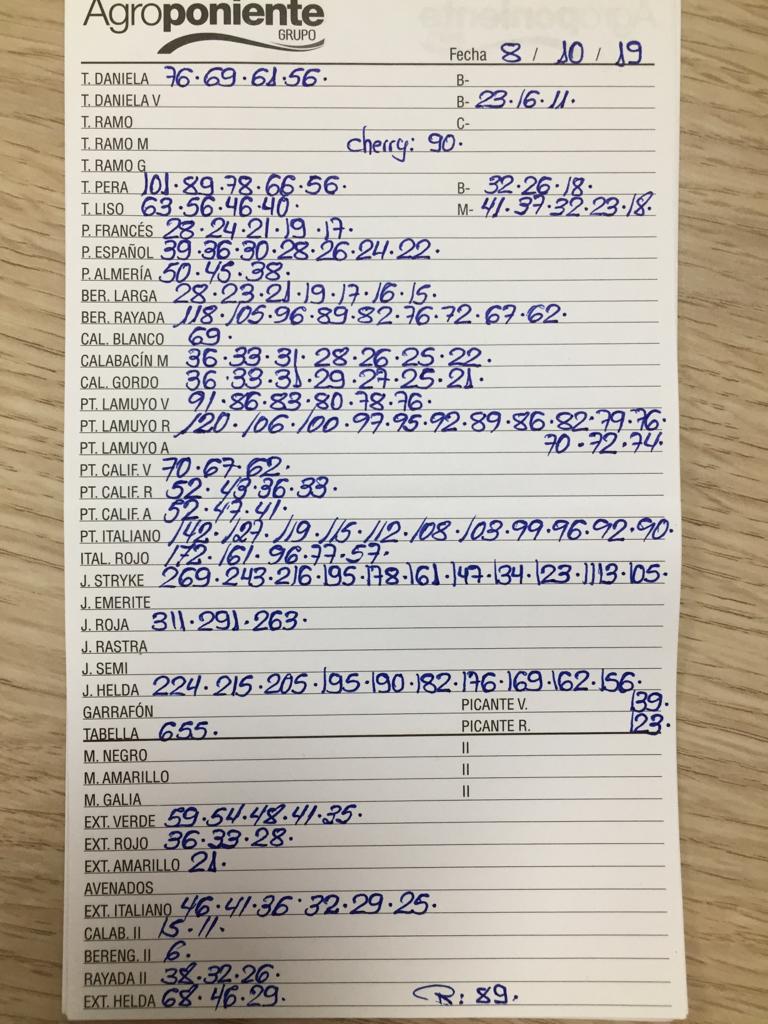 Agroponiente
GRUPO
Fecha 8 / 10 / 19
T. DANELA 76·69·61·56· B-
T. DANIELA V B- 23·16·11·
T. RAMO C-
T. RAMO M cherry: 90·
T. RAMO G
T. PERA 101·89·78·66·56· B- 32·26·18·
T. LISO 63·56·46·40· M- 41·37·32·23·18·
P. FRANCÉS 28·24·21·19·17·
P. ESPAÑOL 39·36·30·28·26·24·22·
P. ALMERÍA 50·45·38·
BER. LARGA 28·23·21·19·17·16·15·
BER. RAYADA 118·105·96·89·82·76·72·67·62·
CAL. BLANCO 69·
CALABACÍN M 36·33·31·28·26·25·22·
CAL. GORDO 36·33·31·29·27·25·21·
PT. LAMUYO V 91·86·83·80·78·76·
PT. LAMUYO R 120·106·100·97·95·92·89·86·82·79·76·
PT. LAMUYO A 70·72·74·
PT. CALIF. V 70·67·62·
PT. CALIF. R 52·43·36·33·
PT. CALIF. A 52·47·41·
PT. ITALIANO 142·127·119·115·112·108·103·99·96·92·90·
ITAL. ROJO 172·161·96·77·57·
J. STRYKE 269·243·216·195·178·161·147·134·123·113·105·
J. EMERITE
J. ROJA 311·291·263·
J. RASTRA
J. SEMI
J. HELDA 224·215·205·195·190·182·176·169·162·156·
GARRAFÓN PICANTE V. 139·
TABELLA 655· PICANTE R. 123·
M. NEGRO II
M. AMARILLO II
M. GALIA II
EXT. VERDE 59·54·48·41·35·
EXT. ROJO 36·33·28·
EXT. AMARILLO 21·
AVENADOS
EXT. ITALIANO 46·41·36·32·29·25·
CALAB. II 15·11·
BERENG. II 6·
RAYADA II 38·32·26·
EXT. HELDA 68·46·29· R: 89·